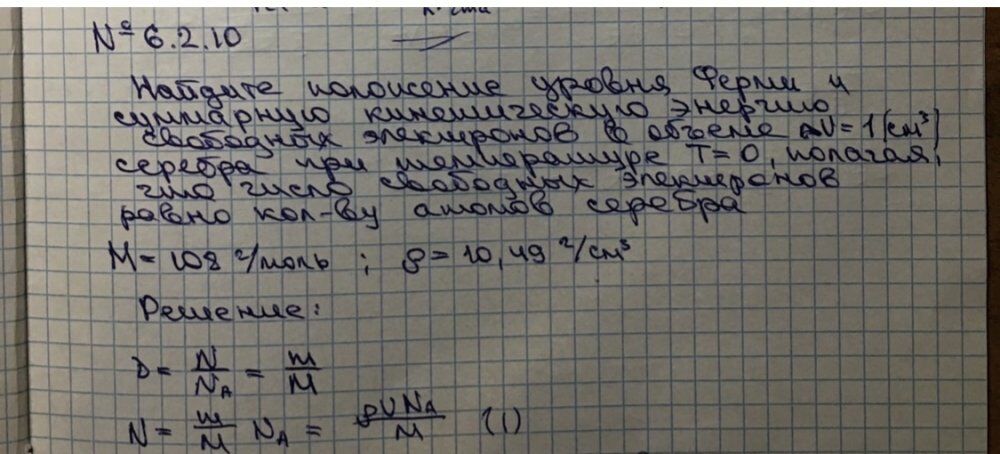 № 6.2.10
Найдите положение уровня Ферми и
суммарную кинетическую энергию
свободных электронов в объеме V = 1 (см³)
серебра при температуре T = 0, полагая,
что число свободных электронов
равно кол-ву атомов серебра
M = 108 г/моль ; ρ = 10,49 г/см³
Решение:
ν = N/N_A = m/M
N = m/M N_A = ρVN_A/M (1)